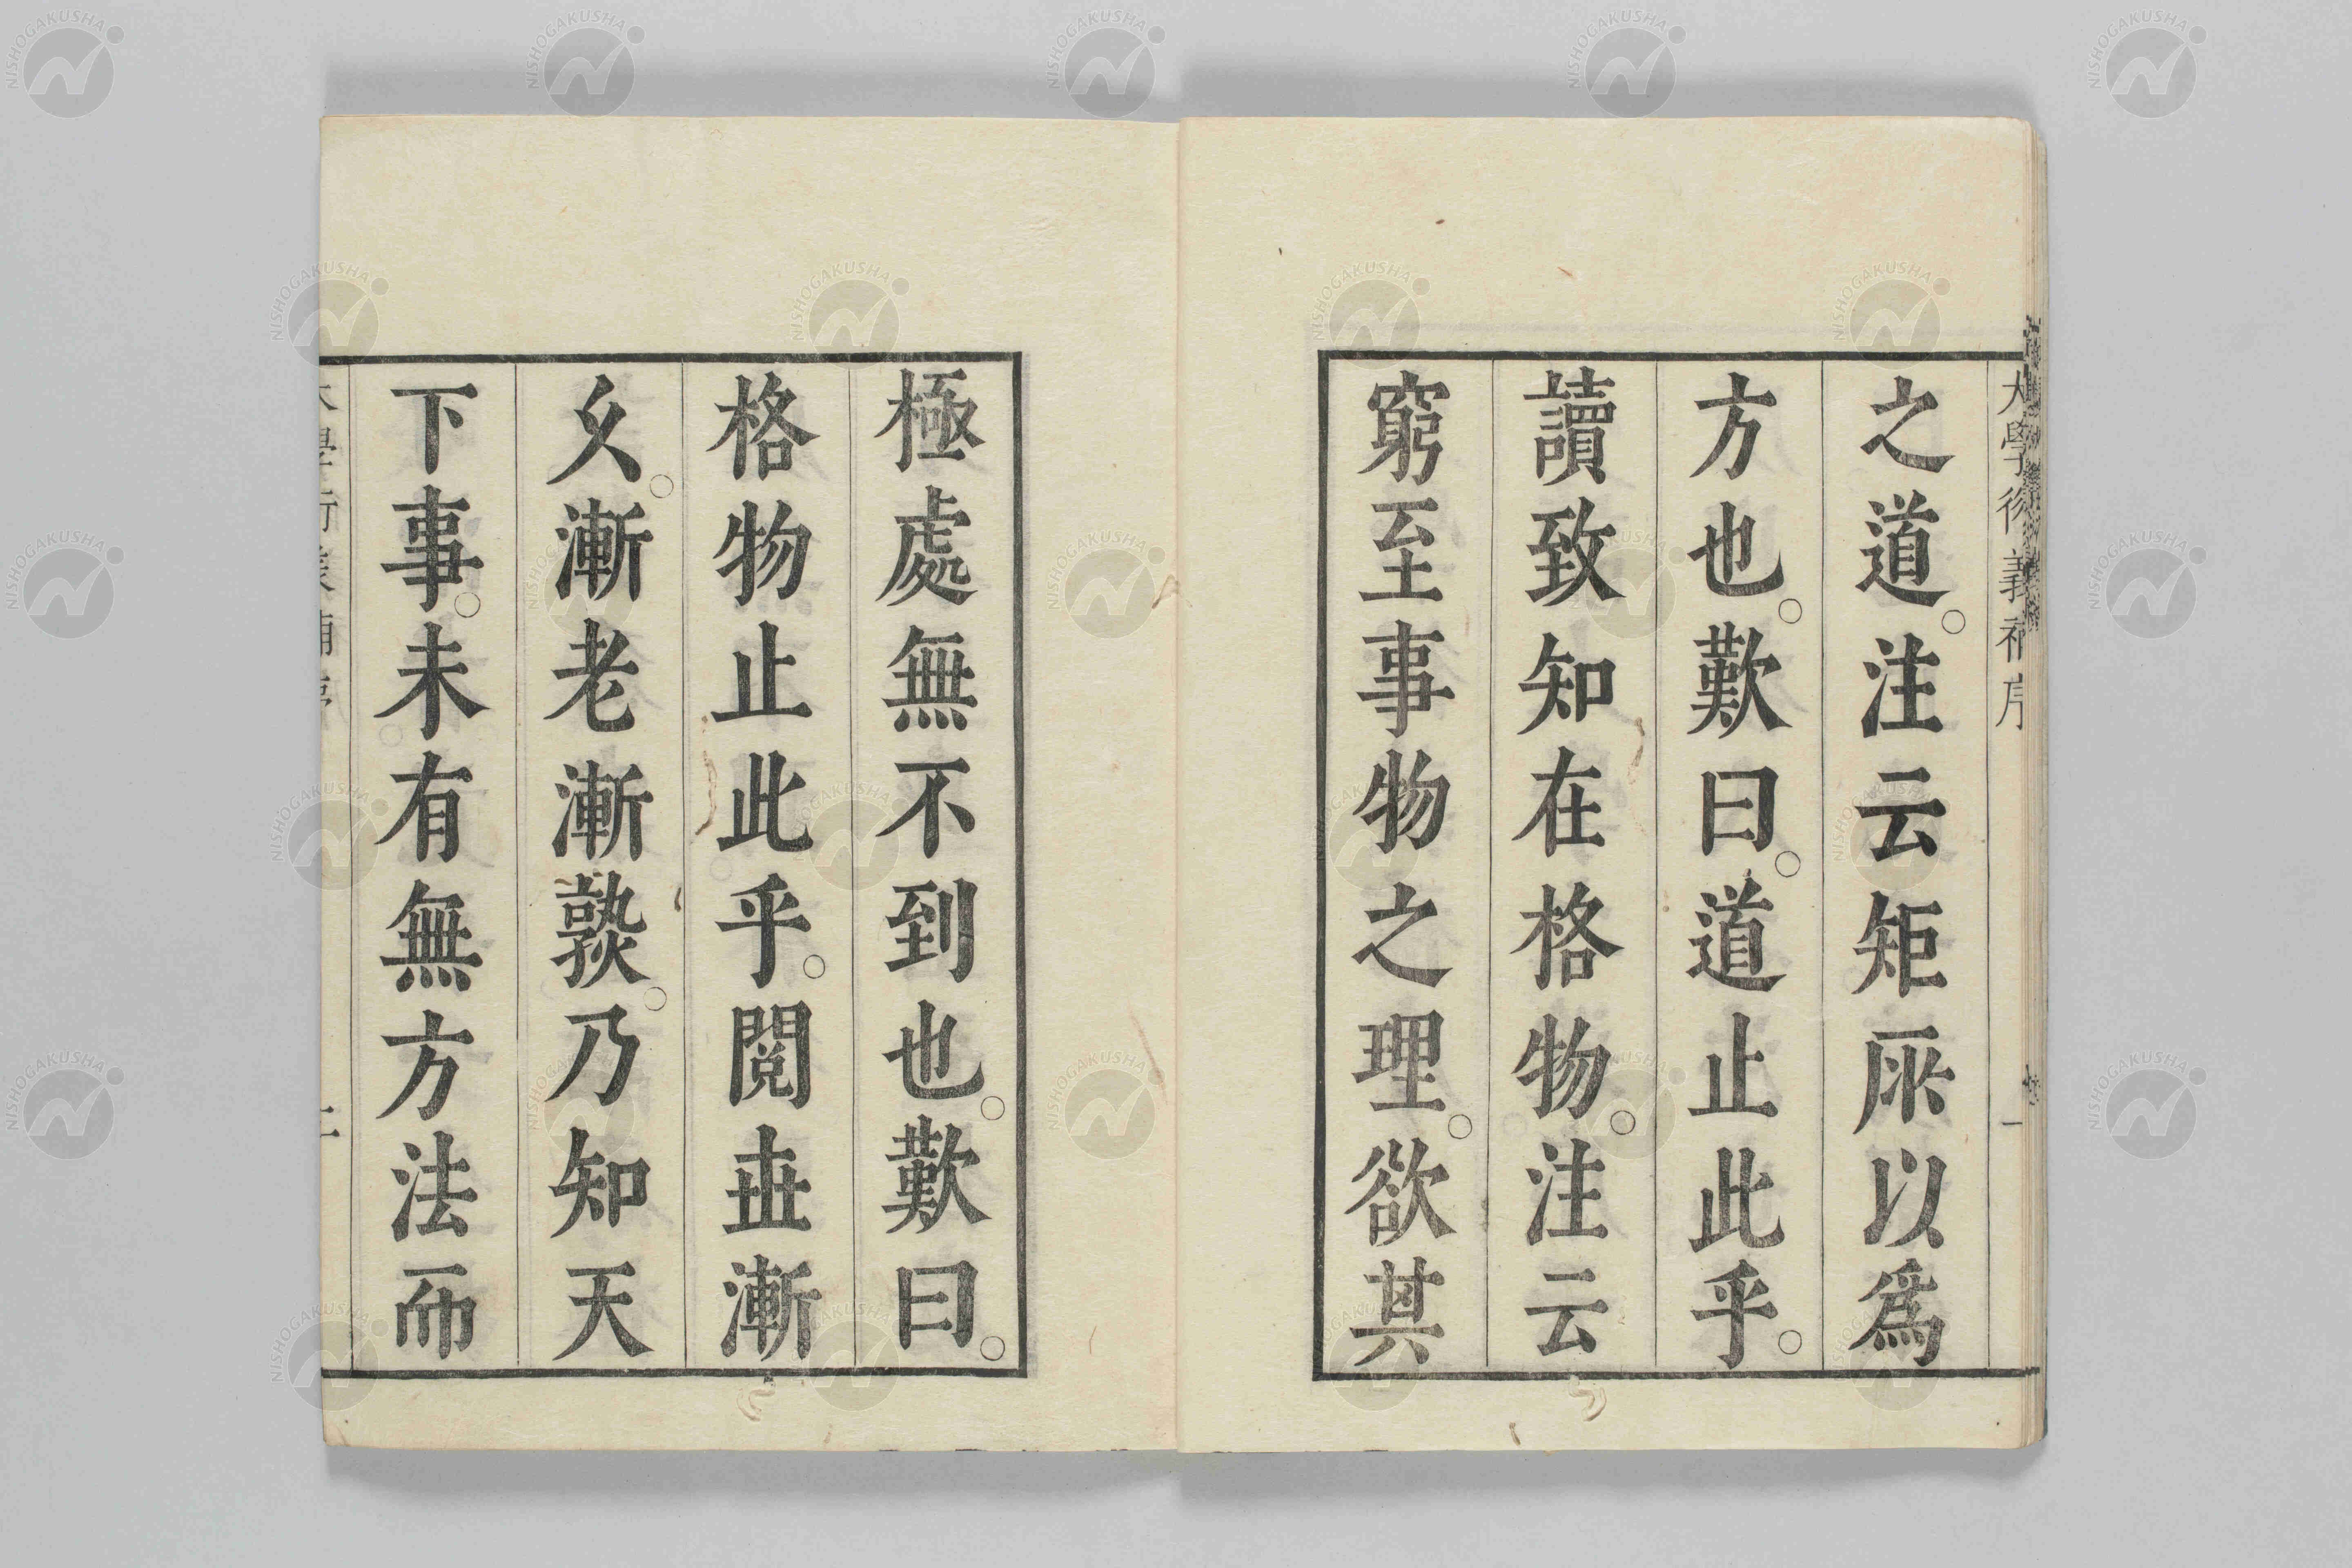 大學衍義補序 一
之道。注云矩所以爲
方也。歎曰。道止此乎。
讀致知在格物。注云
窮至事物之理。欲其
極處無不到也。歎曰。
格物止此乎。閱世漸
久。漸老漸熟。乃知天
下事。未有無方法而
大學衍義補序 二
NISHOGAKUSHA